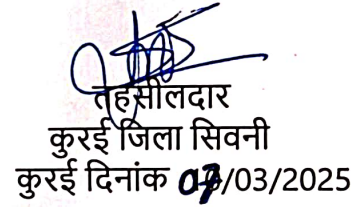 तहसीलदार
कुरई जिला सिवनी
कुरई दिनांक 07/03/2025